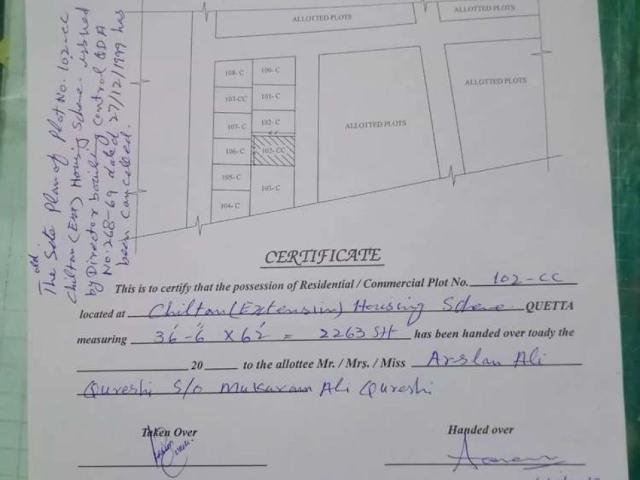 The Site Plan of Plot No. 102-CC
old
Chiltan (Ext) Housing Scheme issued
by Director building Control QDA
No. 268-69 dated 27/12/1999 has
been Cancelled.
ALLOTTED PLOTS
ALLOTTED PLOTS
108- C 100- C
107-CC 101- C
107- C 102- C
106- C 102- CC
105- C 103- C
104- C
ALLOTTED PLOTS
ALLOTTED PLOTS
CERTIFICATE
This is to certify that the possession of Residential / Commercial Plot No. 102-CC
located at Chiltan (Extension) Housing Scheme QUETTA
measuring 36'-6" x 62' = 2263 Sft has been handed over toady the
20 to the allottee Mr. / Mrs. / Miss Arslan Ali
Qureshi S/o Mukaram Ali Qureshi
Taken Over Handed over